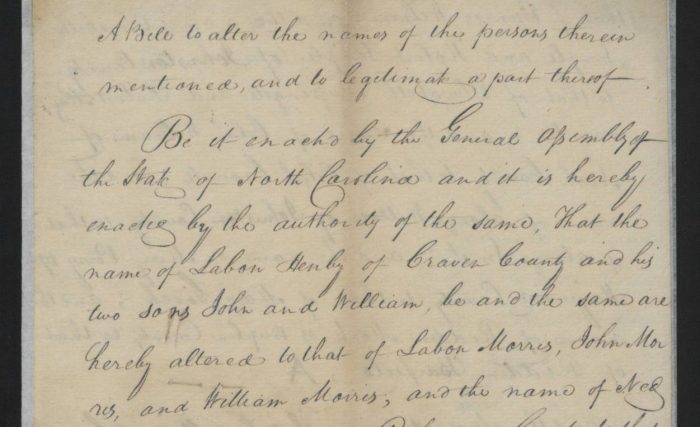 A Bill to alter the names of the persons therein
mentioned, and to legitimate a part thereof
Be it enacted by the General Assembly of
the State of North Carolina and it is hereby
enacted by the authority of the same, That the
name of Labon Henby of Craven County and his
two sons John and William, be and the same are
hereby altered to that of Labon Morris, John Mor
ris, and William Morris; and the name of Ned